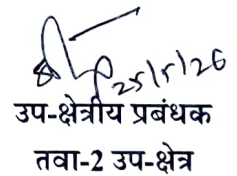 25/5/26
उप-क्षेत्रीय प्रबंधक
तवा-2 उप-क्षेत्र